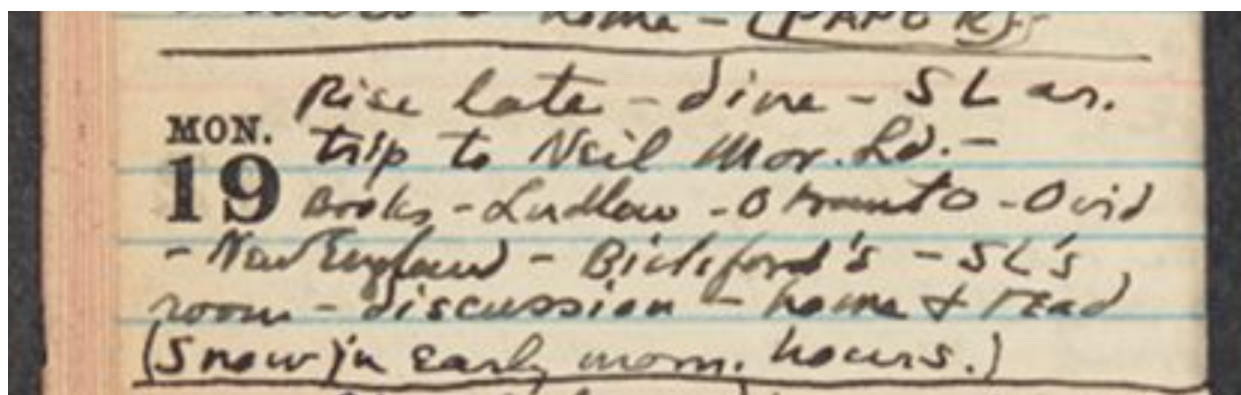 home - (PAPER)
Rise late - dine - SL ar.
MON. trip to Neil Mor. Ld. -
19 Books - Ludlow - Otranto - Ovid
- New England - Bickford's - SL's
room - discussion - home & read
(Snow in early morn. hours.)